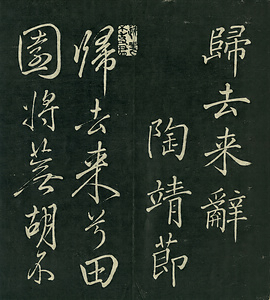 歸去来辭
陶靖節
歸去来兮田
園將蕪胡不